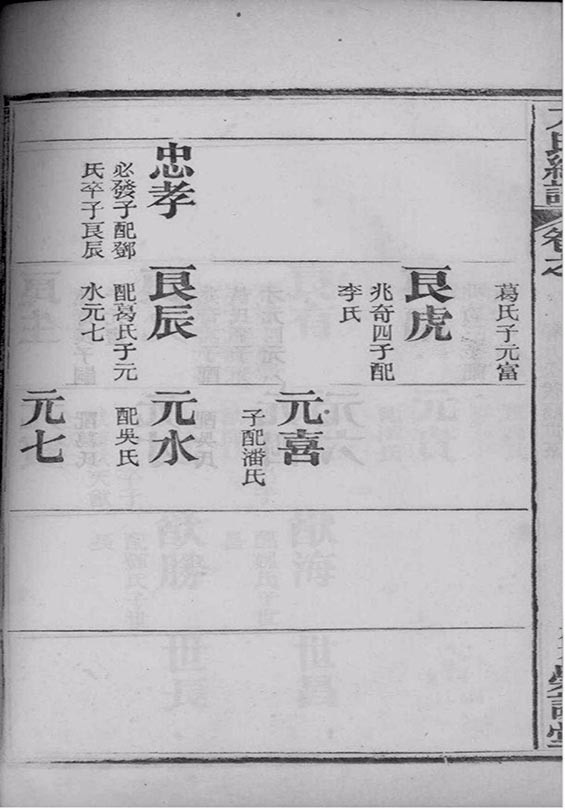 氏總譜
卷之
忠孝
必發子配鄧
氏卒子良辰
葛氏子元富
良虎
兆奇四子配
李氏
良辰
配葛氏子元
水元七
元喜
子配潘氏
元水
配吳氏
元七